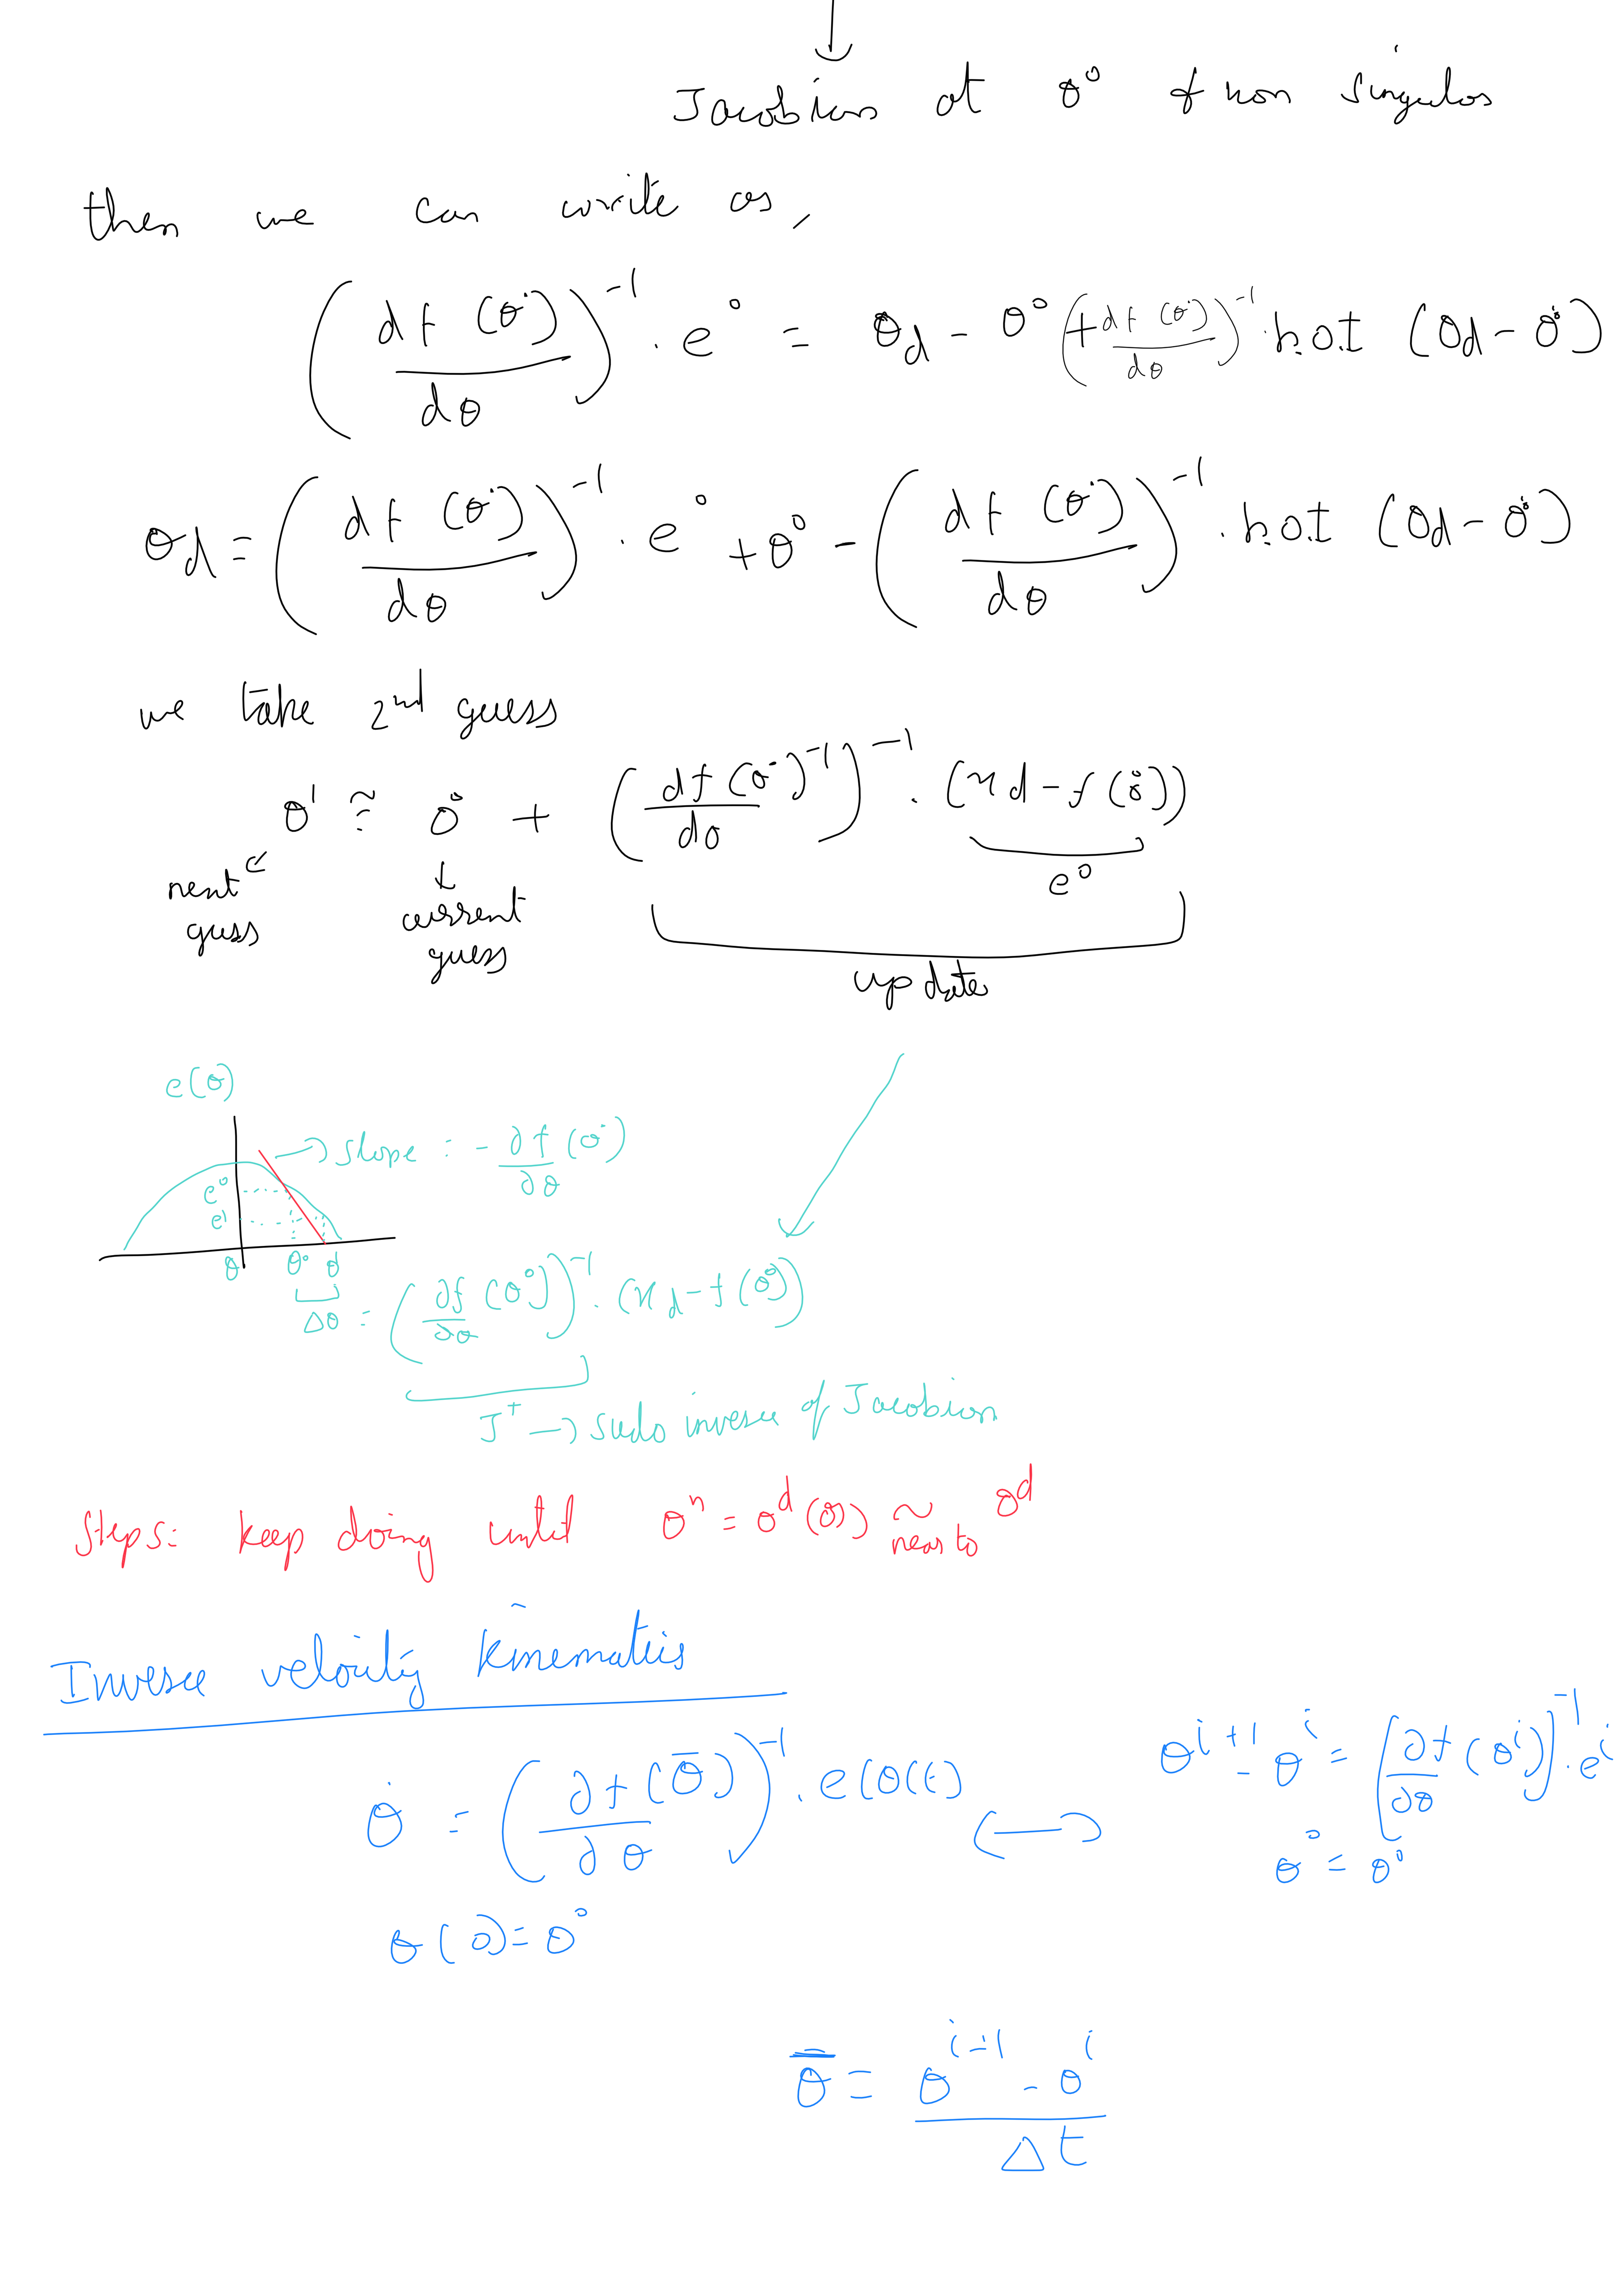 ↓
Jacobian at θ° & non singular
then we can write as,
(df (θ°)/dθ)⁻¹ · e° = θd - θ° (+ df (θ°)/dθ)⁻¹ · h.o.t (θd - θ°)
θd = (df (θ°)/dθ)⁻¹ · e° + θ° - (df (θ°)/dθ)⁻¹ · h.o.t (θd - θ°)
we take 2nd guess
θ¹ ≅ θ° + (df (θ°)⁻¹/dθ)⁻¹ · (xd - f (θ°))
e°
next guess
current guess
update
e(θ)
→ slope : - ∂f/∂θ (θ°)
e°
e¹
θ θ° d
Δθ = (∂f/∂θ (θ°))⁻¹ · (xd - f (θ°))
J⁺ → sudo inverse of Jacobian
Steps: keep doing until θⁿ = θᵈ (θ) ~ next to θᵈ
Inverse velocity kinematics
θ̇ = (∂f (θ̄)/∂θ)⁻¹ · e(θ(t) ⟷ θⁱ⁺¹ - θⁱ = (∂f/∂θ (θⁱ))⁻¹ · eⁱ
θ° = θ°
θ(0) = θ°
θ̄ = θⁱ⁻¹ - θⁱ / Δt